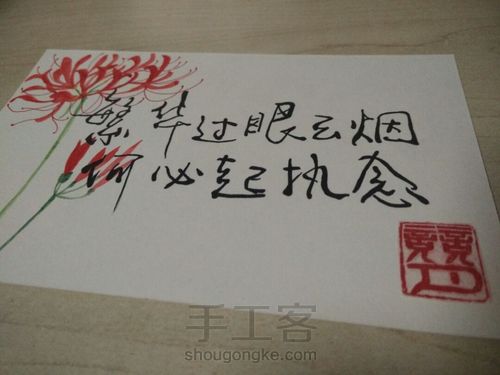 繁华过眼云烟
何必起执念
手工客
shougongke.com